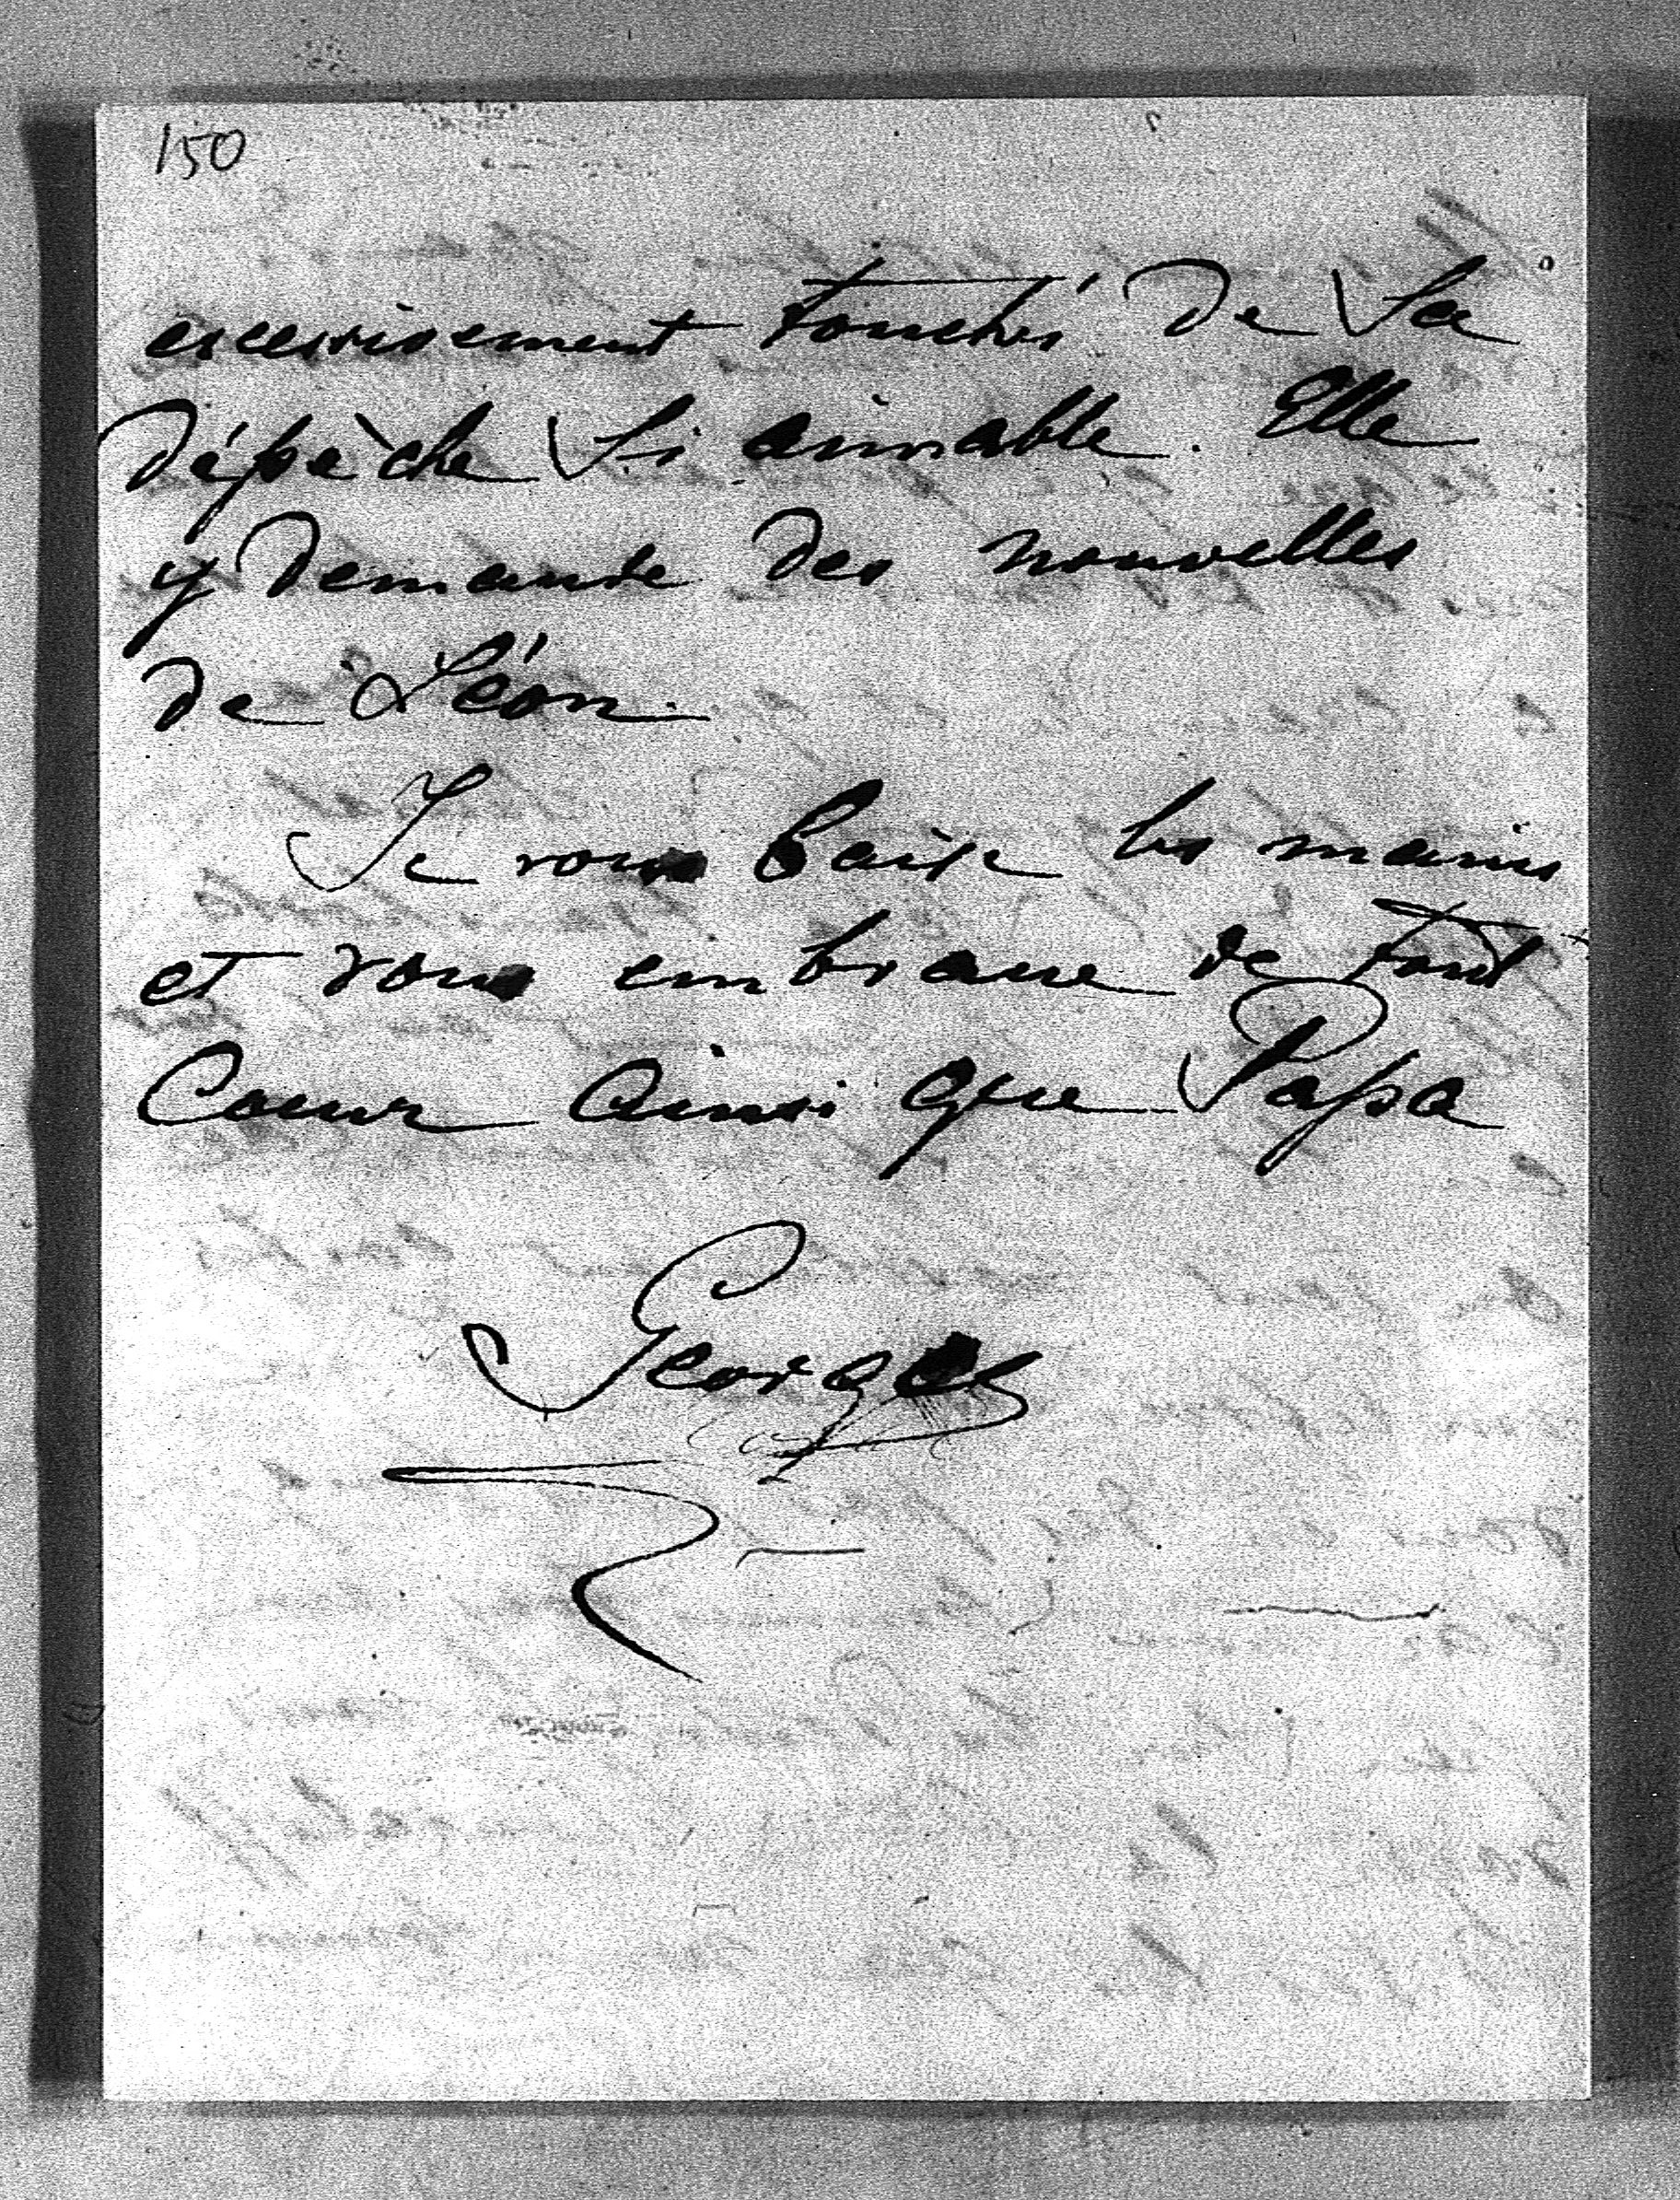 150
excessivement touchés de Sa
dépèche Si aimable. Elle
y demande des nouvelles
de Léon.
Je vous baise les mains
et vous embrasse de tout
Coeur Ainsi que Papa
Georges